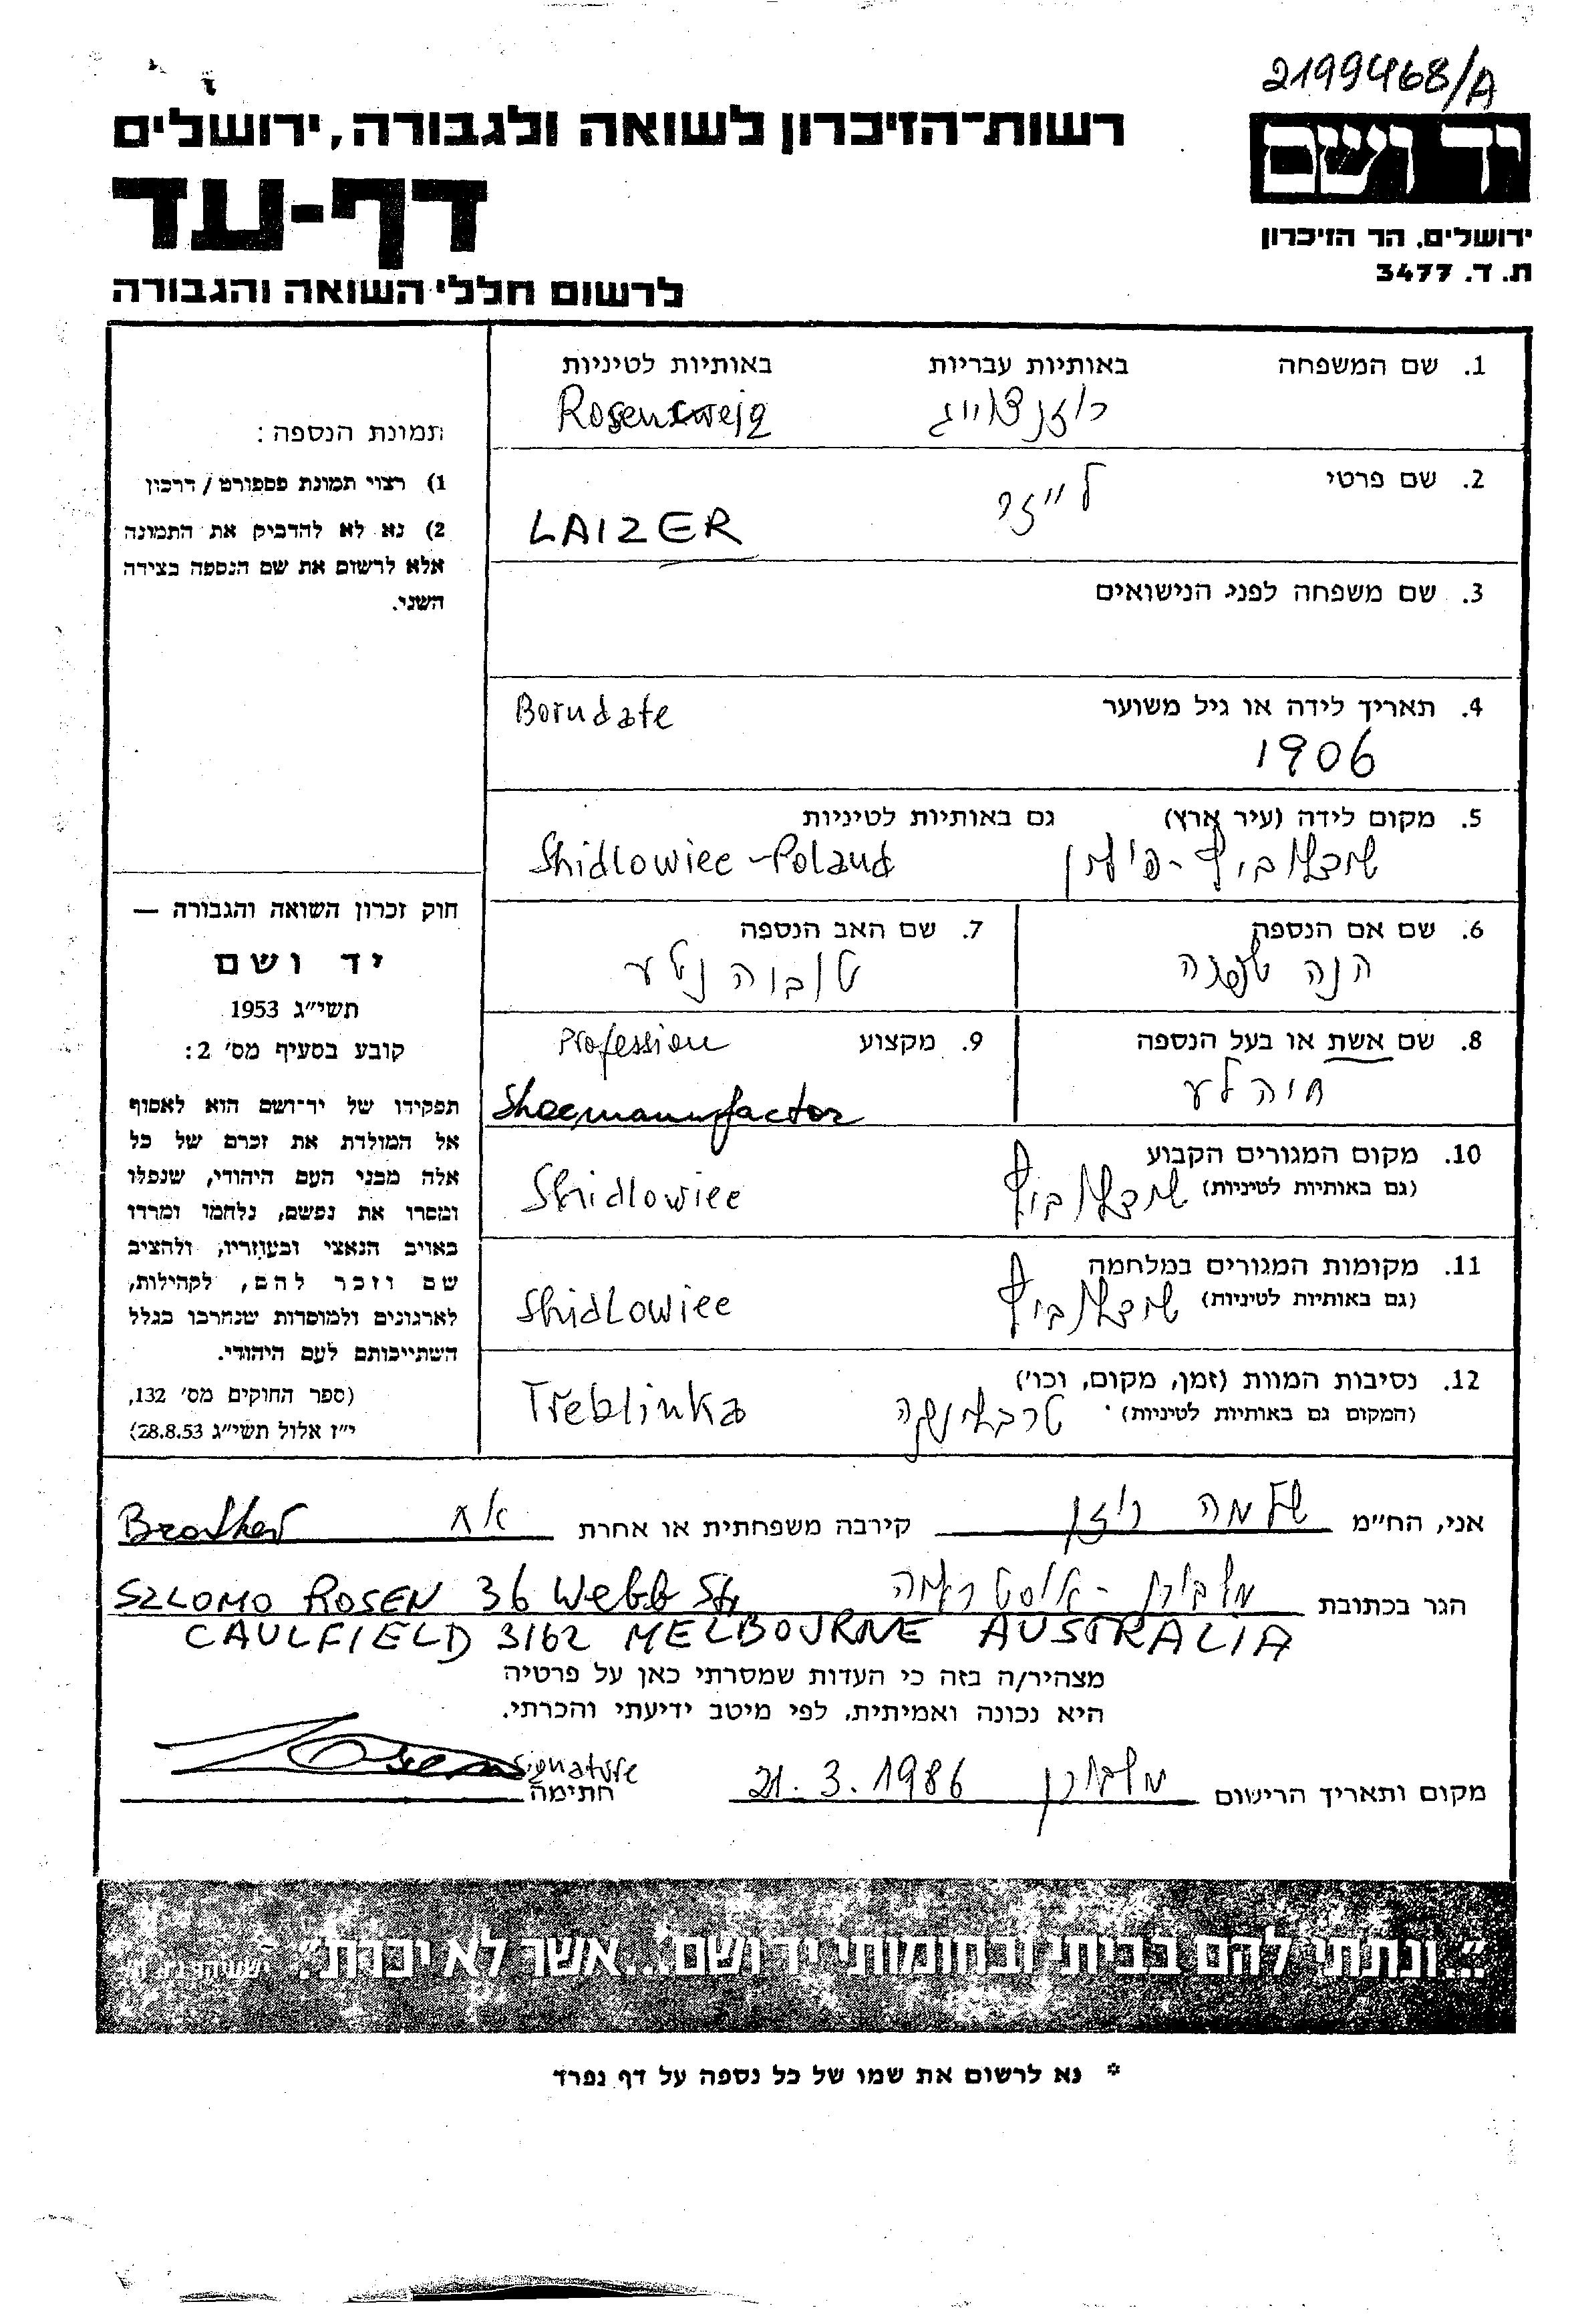 2199468/A
יד ושם
רשות־הזיכרון לשואה ולגבורה, ירושלים
דף-עד
ירושלים, הר הזיכרון
ת. ד. 3477
לרשום חללי השואה והגבורה
1. שם המשפחה באותיות עבריות באותיות לטיניות
רוזנצווייג Rosenzweig
2. שם פרטי לייזר
LAIZER
3. שם משפחה לפני הנישואים
4. תאריך לידה או גיל משוער Borndate
1906
5. מקום לידה (עיר ארץ) גם באותיות לטיניות
שידלוביץ - פוילין Shidlowiec - Poland
6. שם אם הנספה
הנה
7. שם האב הנספה
טוביה נטע
8. שם אשת או בעל הנספה
חיה לע
9. מקצוע Profession
Shoemanufactor
10. מקום המגורים הקבוע
(גם באותיות לטיניות) שידלוביץ Shidlowiec
11. מקומות המגורים במלחמה
(גם באותיות לטיניות) שידלוביץ Shidlowiec
12. נסיבות המוות (זמן, מקום, וכו')
(המקום גם באותיות לטיניות) טרבלינקה Treblinka
תמונת הנספה:
1) רצוי תמונת פספורט / דרכון
2) נא לא להדביק את התמונה
אלא לרשום את שם הנספה בצידה
השני.
חוק זכרון השואה והגבורה —
יד ושם
תשי"ג 1953
קובע בסעיף מס' 2:
תפקידו של יד־ושם הוא לאסוף
אל המולדת את זכרם של כל
אלה מבני העם היהודי, שנפלו
ומסרו את נפשם, נלחמו ומרדו
באויב הנאצי ובעוזריו, ולהציב
שם וזכר להם, לקהילות,
לארגונים ולמוסדות שנחרבו בגלל
השתייכותם לעם היהודי.
(ספר החוקים מס' 132,
י"ז אלול תשי"ג 28.8.53)
אני, הח"מ שלמה רוזן קירבה משפחתית או אחרת אח Brother
הגר בכתובת מלבורן - אוסטרליה SZLOMO ROSEN 36 Webb St,
CAULFIELD 3162 MELBOURNE AUSTRALIA
מצהיר/ה בזה כי העדות שמסרתי כאן על פרטיה
היא נכונה ואמיתית, לפי מיטב ידיעתי והכרתי.
מקום ותאריך הרישום מלבורן 21.3.1986 חתימה Signature Rosen
"...ונתתי להם בביתי ובחומותי יד ושם...אשר לא יכרת". ישעיהו נו, ה
* נא לרשום את שמו של כל נספה על דף נפרד